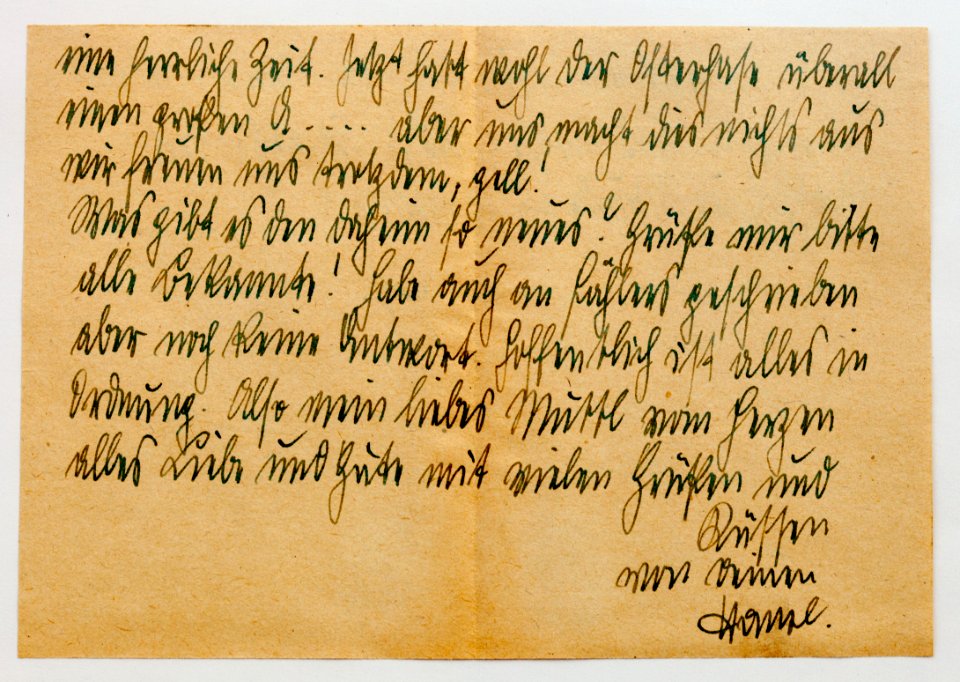 eine herrliche Zeit. Jetzt hast wohl der Osterhase überall
einen großen A.... aber uns macht dies nichts aus
wir freuen uns trotzdem, gell!
Was gibt es den daheim so neues? Grüße mir bitte
alle Bekannte! Habe auch an geschrieben
aber noch keine Antwort. Hoffentlich ist alles in
Ordnung. Also mein liebes Muttl vom Herzen
alles Liebe und Gute mit vielen Grüßen und
Küssen
von Deinen